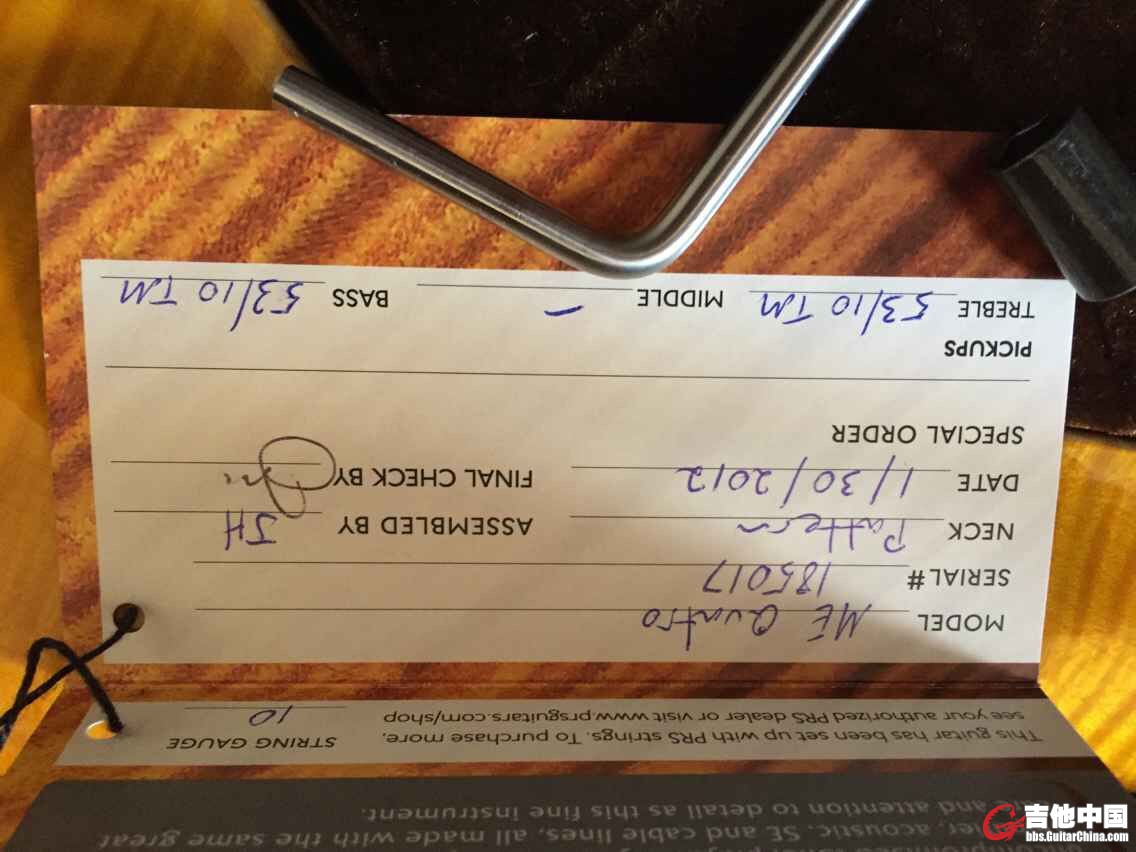 acoustic, SE and cable lines, all made with the same great
and attention to detail as this fine instrument.
This guitar has been set up with PRS strings. To purchase more,
see your authorized PRS dealer or visit www.prsguitars.com/shop
STRING GAUGE 10
MODEL ME Quatro
SERIAL# 185017
NECK Pattern ASSEMBLED BY JH
DATE 1/30/2012 FINAL CHECK BY
SPECIAL ORDER
PICKUPS
TREBLE 53/10 TM MIDDLE — BASS 53/10 TM
吉他中国
bbs.GuitarChina.com